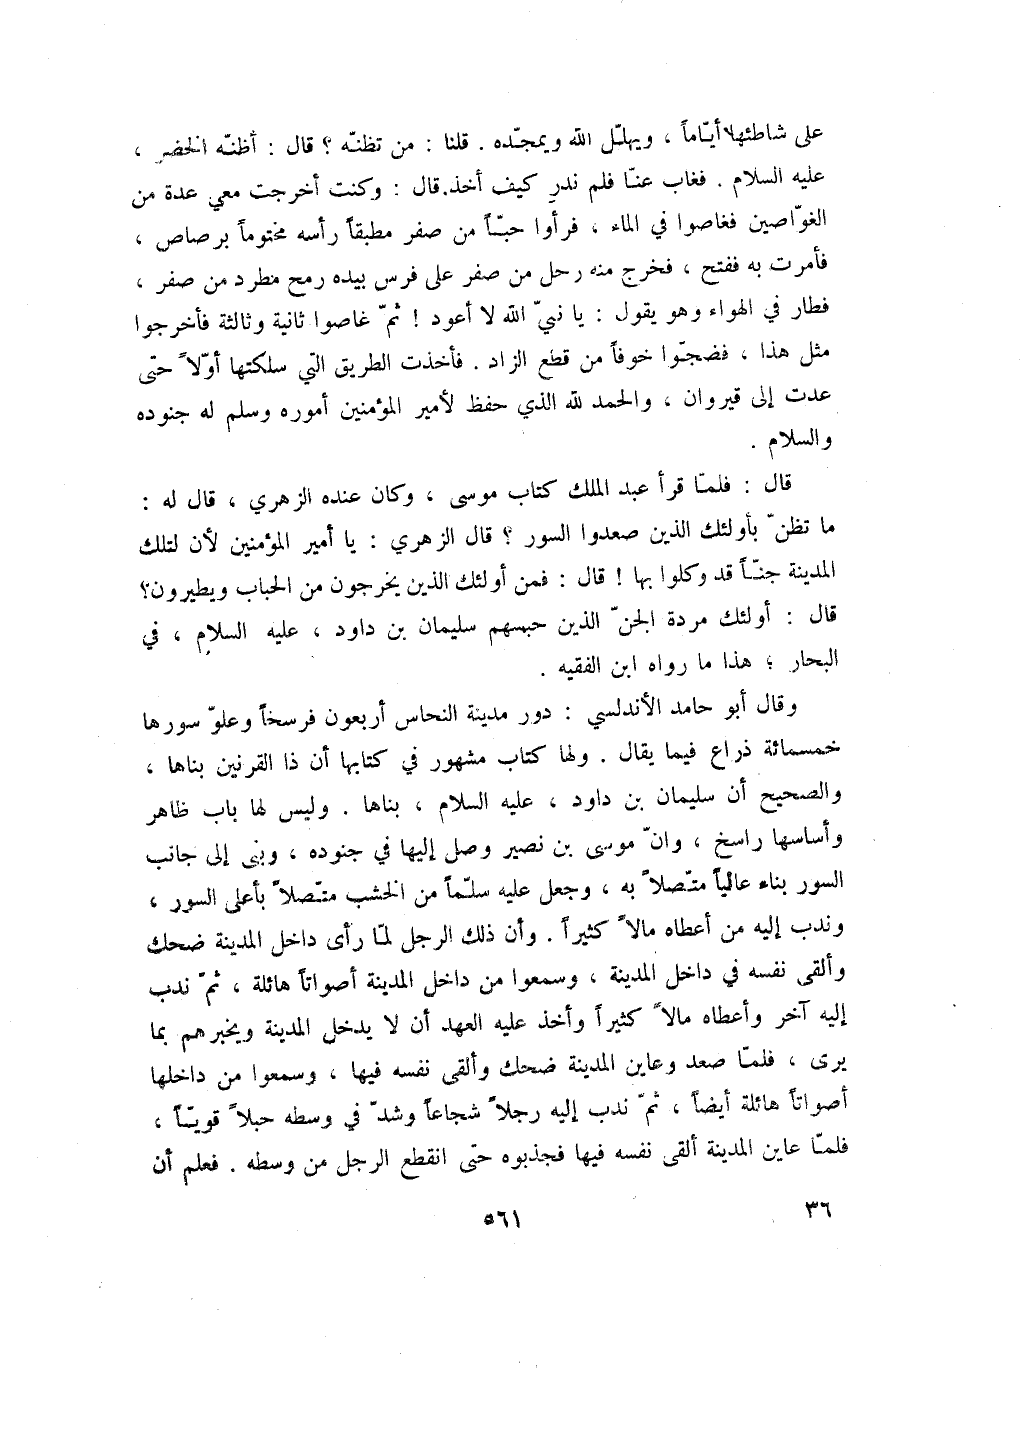 على شاطئها أيّاماً ، ويهلّل الله ويمجّده . قلنا : من تظنّه ؟ قال : أظنّه الخضر ،
عليه السلام . فغاب عنّا فلم ندرِ كيف أخذ. قال : وكنت أخرجت معي عدة من
الغوّاصين فغاصوا في الماء ، فرأوا حبّاً من صفر مطبقاً رأسه مختوماً برصاص ،
فأمرت به ففتح ، فخرج منه رجل من صفر على فرس بيده رمح مطرد من صفر ،
فطار في الهواء وهو يقول : يا نبيّ الله لا أعود ! ثمّ غاصوا ثانية وثالثة فأخرجوا
مثل هذا ، فضجّوا خوفاً من قطع الزاد . فأخذت الطريق التي سلكتها أوّلاً حتّى
عدت إلى قيروان ، والحمد لله الذي حفظ لأمير المؤمنين أموره وسلم له جنوده
والسلام .
قال : فلمّا قرأ عبد الملك كتاب موسى ، وكان عنده الزهري ، قال له :
ما تظنّ بأولئك الذين صعدوا السور ؟ قال الزهري : يا أمير المؤمنين لأن لتلك
المدينة جنّاً قد وكلوا بها ! قال : فمن أولئك الذين يخرجون من الحباب ويطيرون؟
قال : أولئك مردة الجنّ الذين حبسهم سليمان بن داود ، عليه السلام ، في
البحار ؛ هذا ما رواه ابن الفقيه .
وقال أبو حامد الأندلسي : دور مدينة النحاس أربعون فرسخاً وعلوّ سورها
خمسمائة ذراع فيما يقال . ولها كتاب مشهور في كتابها أن ذا القرنين بناها ،
والصحيح أن سليمان بن داود ، عليه السلام ، بناها . وليس لها باب ظاهر
وأساسها راسخ ، وانّ موسى بن نصير وصل إليها في جنوده ، وبنى إلى جانب
السور بناء عالياً متّصلاً به ، وجعل عليه سلّماً من الخشب متّصلاً بأعلى السور ،
وندب إليه من أعطاه مالاً كثيراً . وأن ذلك الرجل لمّا رأى داخل المدينة ضحك
وألقى نفسه في داخل المدينة ، وسمعوا من داخل المدينة أصواتاً هائلة ، ثمّ ندب
إليه آخر وأعطاه مالاً كثيراً وأخذ عليه العهد أن لا يدخل المدينة ويخبرهم بما
يرى ، فلمّا صعد وعاين المدينة ضحك وألقى نفسه فيها ، وسمعوا من داخلها
أصواتاً هائلة أيضاً ، ثمّ ندب إليه رجلاً شجاعاً وشدّ في وسطه حبلاً قويّاً ،
فلمّا عاين المدينة ألقى نفسه فيها فجذبوه حتى انقطع الرجل من وسطه . فعلم أن
٣٦
٥٦١